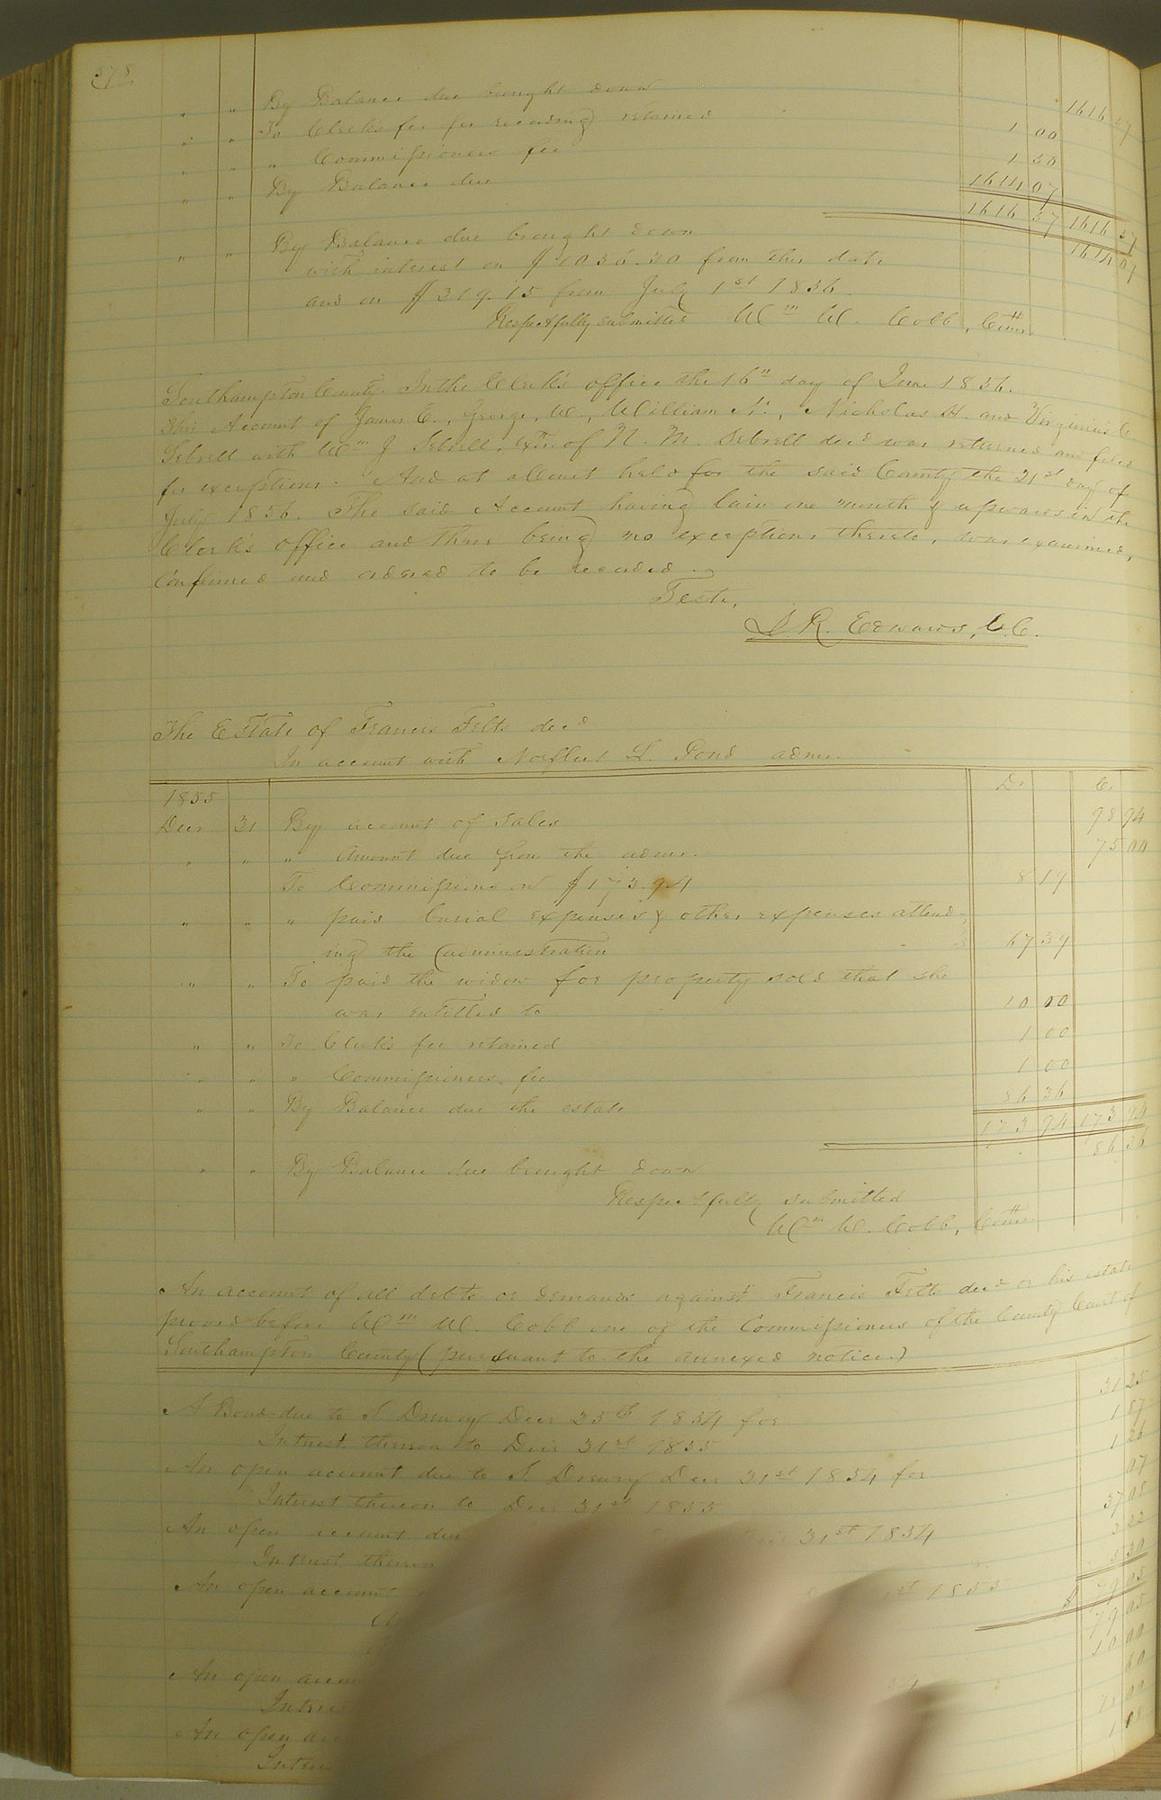 378
" " By Balance due brought down 1616 57
" " To Clerk's fee for recording retained 1 00
" " " Commissioners fee 1 50
" " By Balance due 1614 07
1616 57 1616 57
" " By Balance due brought down 1614 07
with interest on $1036.30 from this date
and on $319.15 from July 1st 1856
Respectfully submitted Wm W. Cobb, Comr
Southampton County. In the Clerk's office the 16th day of June 1856.
This Account of James E., George, W., William N., Nicholas H. and Virginius C
Sebrell with Wm J Sebrell, Exr. of N. M. Sebrell decd was returned and filed
for exceptions. And at a Court held for the said County the 21st day of
July 1856. The said Account having lain one month & upwards in the
Clerk's office and there being no exceptions thereto, was examined,
Confirmed and ordered to be recorded.
Teste,
L R. Edwards, C.C.
The Estate of Francis Felts decd
In account with Norfleet L. Pond admr.
Dr Cr
1855
Decr 31 By account of Sales 98 94
" " " Amount due from the admr. 75 00
To Commission on $173.94 8 19
" " " paid burial expenses & other expenses attend-
ing the administration 67 39
" " To paid the widow for property sold that she
was entitled to 10 00
" " To Clerk's fee retained 1 00
" " " Commissioners fee 1 00
" " By Balance due the estate 86 36
173 94 173 94
" " By Balance due brought down 86 36
Respectfully submitted
Wm W. Cobb, Comr
An account of all debts or demands against Francis Felts decd or his estate
proved before Wm W. Cobb one of the Commissioners of the County Court of
Southampton County (pursuant to the annexed notice.)
A Bond due to T Drewry Decr 25th 1854 for 31 25
Interest thereon to Decr 31st 1855 1 87
An open account due to T. Drewry Decr 31st 1854 for 1 26
Interest thereon to Decr 31st 1855 07
An open account due 31st 1854 37 05
Interest thereon 2 22
An open account 1st 1855 5 30
$ 79 05
79 05
10 00
An open accou 60
Inter
An open ac
Inter